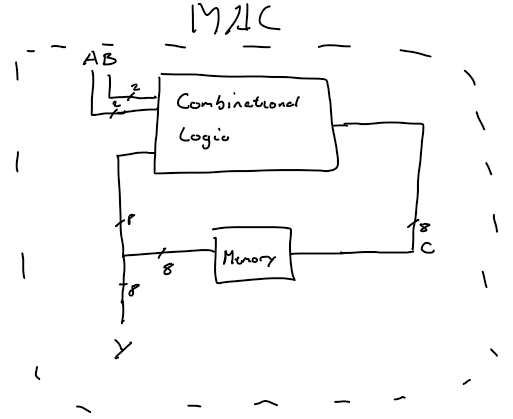 MAC
A B
2
2
Combinational
Logic
8
8
Memory
8
C
8
Y